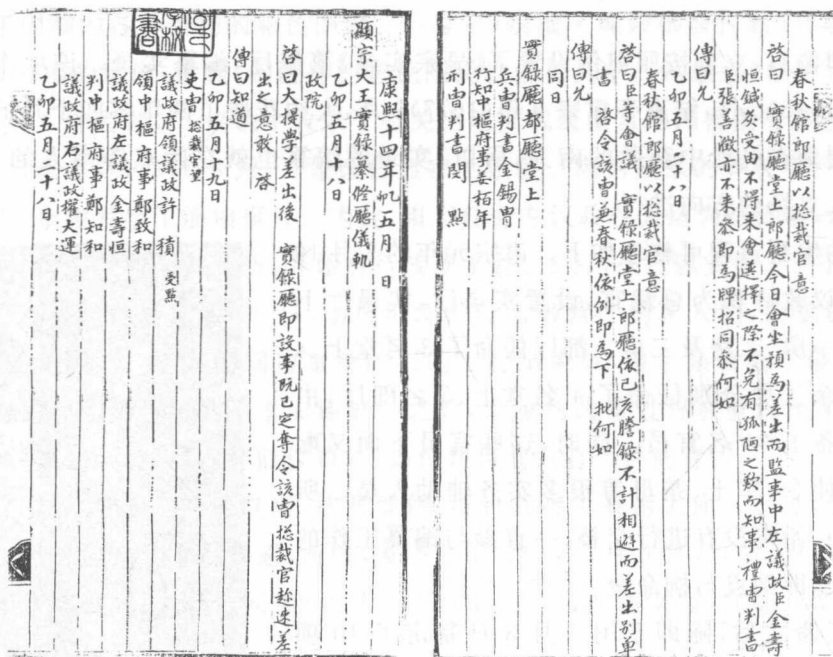 康熙十四年乙卯五月 日
顯宗大王實錄纂修廳儀軌
乙卯五月十八日
政院
啓曰大提學差出後 實錄廳即設事既已定奪令該曹摠裁官趁速差
出之意敢 啓
傳曰知道
乙卯五月十九日
吏曹 摠裁官望
議政府領議政許 積 受點
領中樞府事鄭致和
議政府左議政金壽恒
判中樞府事鄭知和
議政府右議政權大運
乙卯五月二十八日
春秋館郎廳以摠裁官意
啓曰 實錄廳堂上郎廳今日會坐預爲差出而監事中左議政臣金壽
恒鍼灸受由不得來會選擇之際不免有孤陋之歎而知事禮曹判書
臣張善瀓亦不來叅即爲牌招同叅何如
傳曰允
乙卯五月二十八日
春秋館郎廳以摠裁官意
啓曰臣等會議 實錄廳堂上郎廳依己亥謄錄不計相避而差出別單
書 啓令該曹兼春秋依例即爲下 批何如
傳曰允
同日
實錄廳都廳堂上
兵曹判書金錫胄
行知中樞府事姜栢年
刑曹判書閔 點